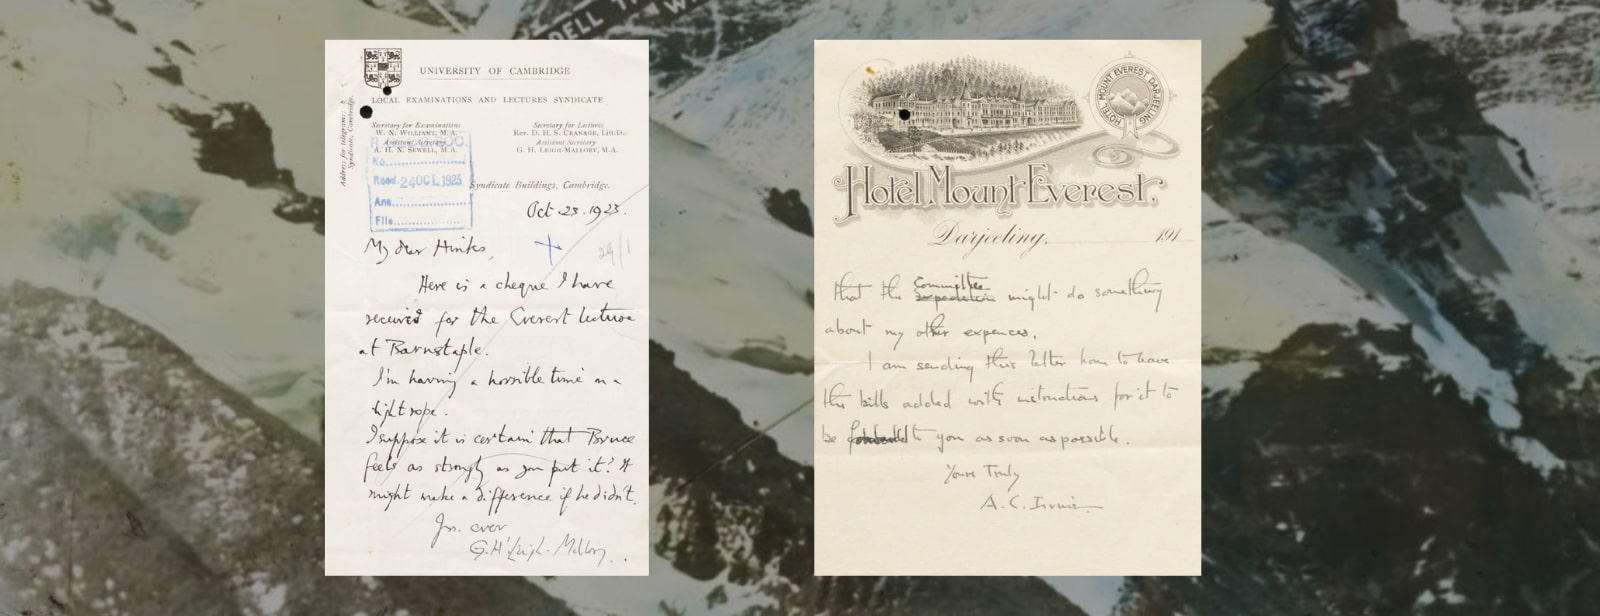 DELL
UNIVERSITY OF CAMBRIDGE
LOCAL EXAMINATIONS AND LECTURES SYNDICATE
Address for telegrams: Syndicate, Cambridge.
Secretary for Examinations
W. N. WILLIAMS, M.A.
Assistant Secretary
A. H. N. SEWELL, M.A.
Secretary for Lectures
Rev. D. H. S. CRANAGE, Litt.D.
Assistant Secretary
G. H. LEIGH-MALLORY, M.A.
No.
Recd. 24 OCT. 1923
Ans
File
Syndicate Buildings, Cambridge.
Oct. 23. 1923.
24/1
My dear Hinks,
Here is a cheque I have
received for the Everest lecture
at Barnstaple.
I'm having a horrible time on a
tight rope.
I suppose it is certain that Bruce
feels as strongly as you put it? It
might make a difference if he didn't.
Yrs. ever
G. H. Leigh-Mallory.
HOTEL MOUNT EVEREST DARJEELING
Hotel Mount Everest.
Darjeeling, 191
that the committee
expedition might do something
about my other expences.
I am sending this letter home to have
the bills added with instructions for it to
be to you as soon as possible.
Yours Truly
A. C. Irvine